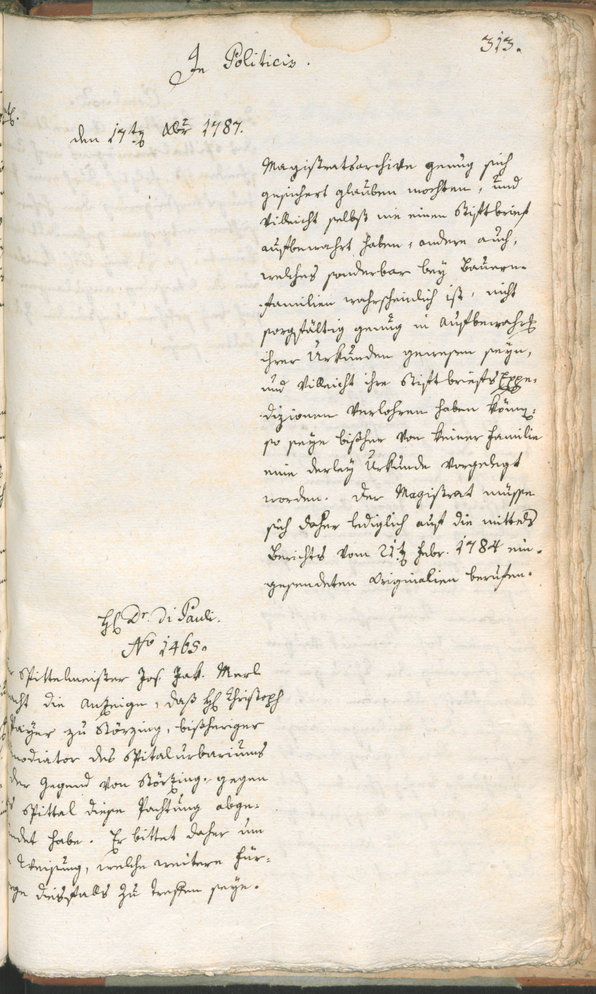 In Politicis.
313.
den 17t 1787.
Magistratsarchive genug sich
gesichert glauben mochten, und
villeicht selbst nie einen Stiftbrief
aufbewahrt haben, andere auch,
welches sonderbar bey Bauern-
familien wahrscheinlich ist, nicht
sorgfältig genug in Aufbewahrg
ihrer Urkunden gewesen seyn,
und villeicht ihre Stiftbriefs Expe-
dizionen verlohren haben könn,
so seye bißher von keiner Familie
eine derley Urkunde vorgelegt
worden. Der Magistrat müsse
sich daher lediglich auf die mittels
Berichts vom 21t Febr. 1784 ein-
gesendeten Originalien berufen.
H Dr. Di Pauli.
No 1465.
Spittelmeister Jos. Jak. Merl
die Anzeige, daß H Christoph
zu Störzing, bißheriger
des Spitalurbariums
der Gegend von Störzing, gegen
Spittal diese Pachtung abge-
habe. Er bittet daher um
Weisung, welche weitere Für-
diesfalls zu treffen seye.